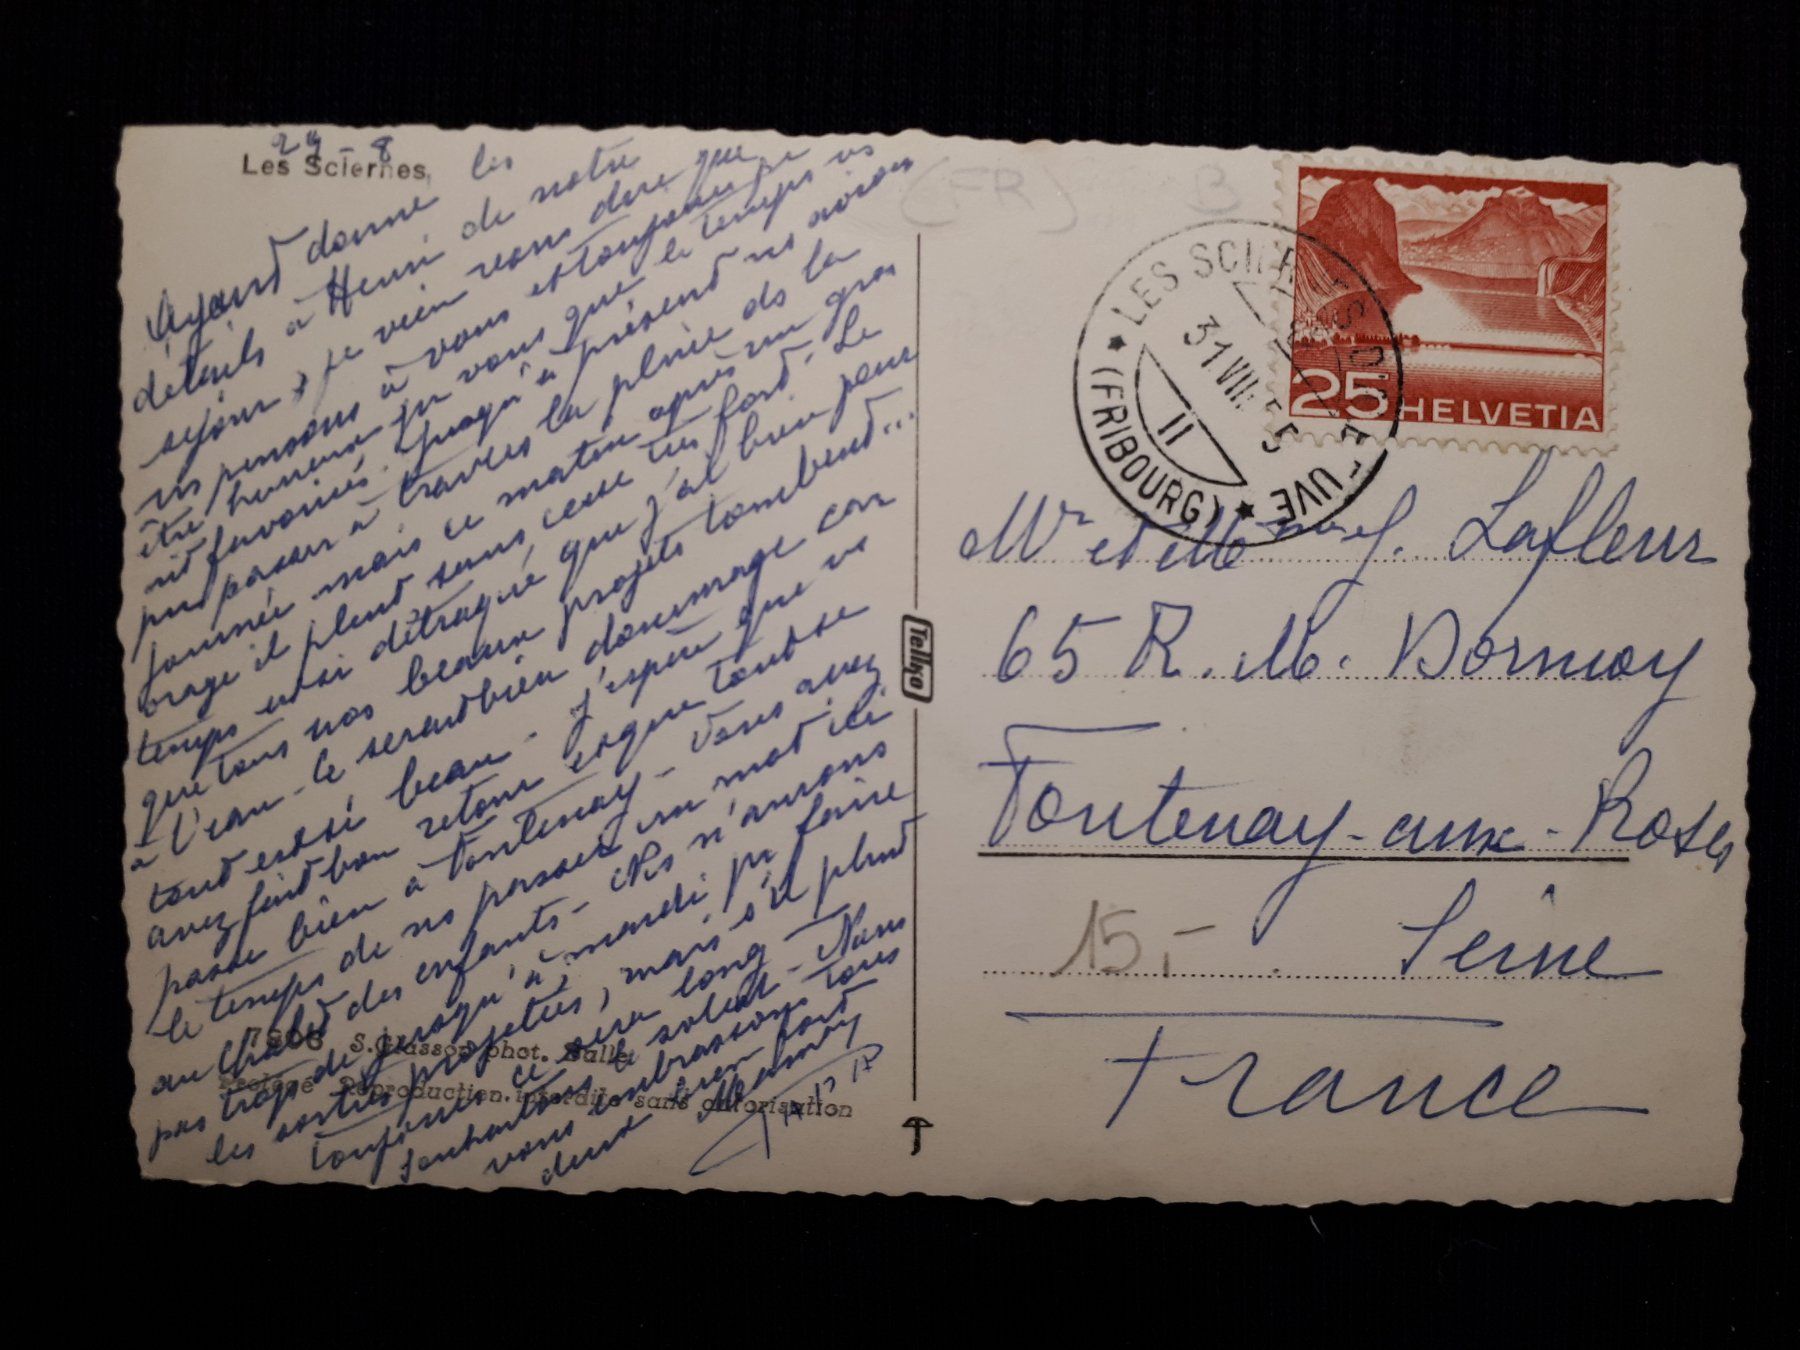 29 - 8
Les Sciernes
Ayant donné les
détails à Henri de notre
séjour, je vien vous dire que
ns pensons à vous et toujours pr
être heureux pr vous que le temps vs
ait favorisés. Jusqu'à présent ns avions
pu passer à travers la pluie ds la
journée mais ce matin après un gros
orage il pleut sans cesse très fort. Le
temps est si détraqué que j'ai bien peur
que tous nos beaux projets tombent...
à l'eau - ce serait bien dommage car
tout est si beau - J'espère que vs
avez fait bon retour et que tout se
passe bien à Fontenay - Vous avez
le temps de ns passer un mot ici
au chalet des enfants - Ns n'aurons
pas trop de jusqu'à mardi pr faire
les sorties projetées, mais s'il pleut
toujours ce sera long - Nous
souhaitons le soleil - Nous
vous embrassons tous
deux bien fort
Mamy
PAPA
7806 S.Glasson phot. Bulle
Protégé Reproduction interdite sans autorisation
Tellko
(FR) B
LES SCIERNES D'ALBEUVE
(FRIBOURG)
31.VIII. 55
11
25 HELVETIA
Mr et Mme J. Lafleur
65 R. M. Dormoy
Fontenay-aux-Roses
15,- Seine
France